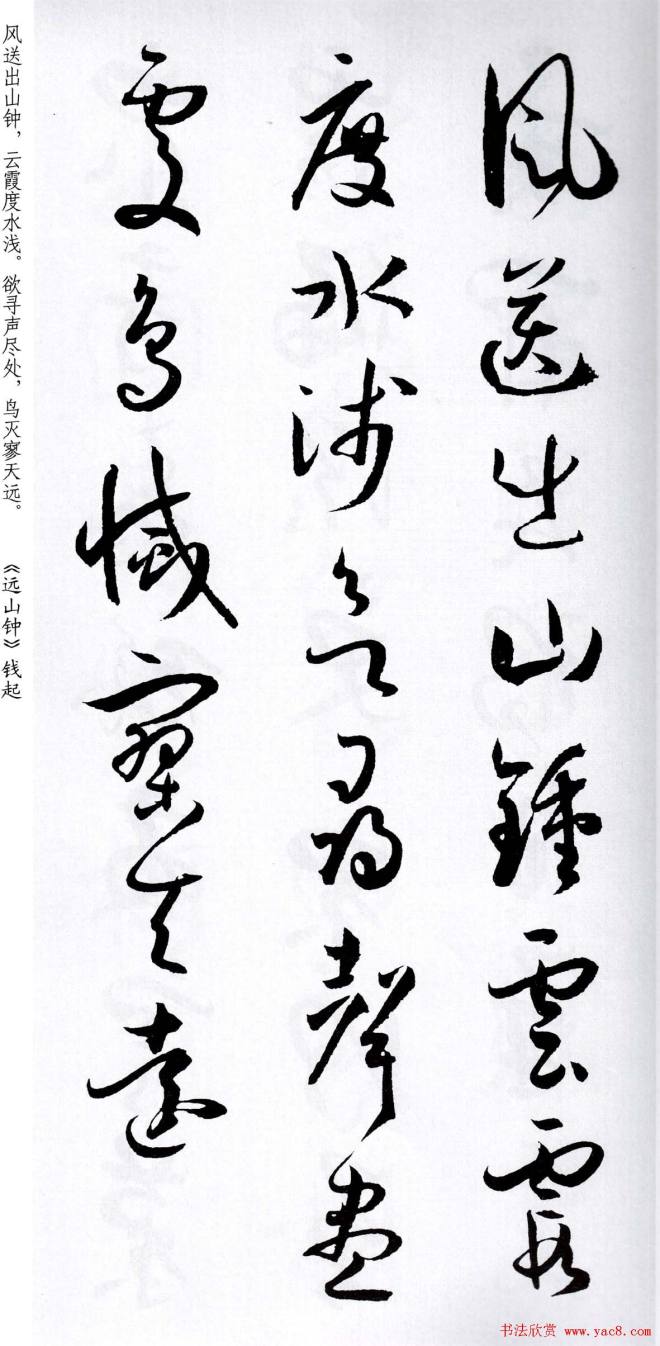 風送出山鍾雲霞
度水浅欲尋聲盡
處鸟滅寥天遠
风送出山钟，云霞度水浅。欲寻声尽处，鸟灭寥天远。 《远山钟》钱起
书法欣赏 www.yac8.com